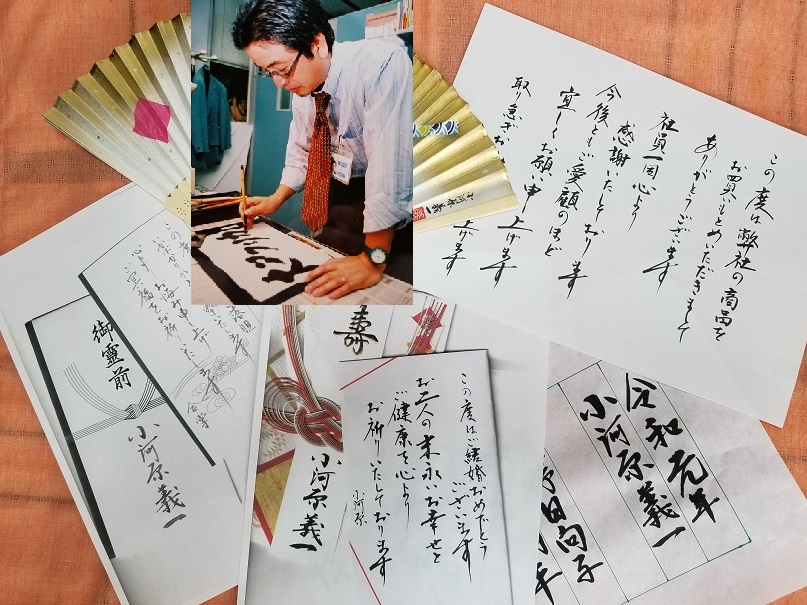 この度は弊社の商品を
お買いもとめいただきまして
ありがとうございます
社員一同心より
感謝いたしております
今後ともご愛顧のほど
宜しくお願い申し上げます
取り急ぎお
上げます
この度
心より
ご冥福をお祈りいた
御霊前
小河原義一
寿
小河原義一
この度はご結婚おめでとう
ございます
お二人の末永いお幸せを
ご健康を心より
お祈りいたしております
小河原
令和元年
小河原義一
日向子
年